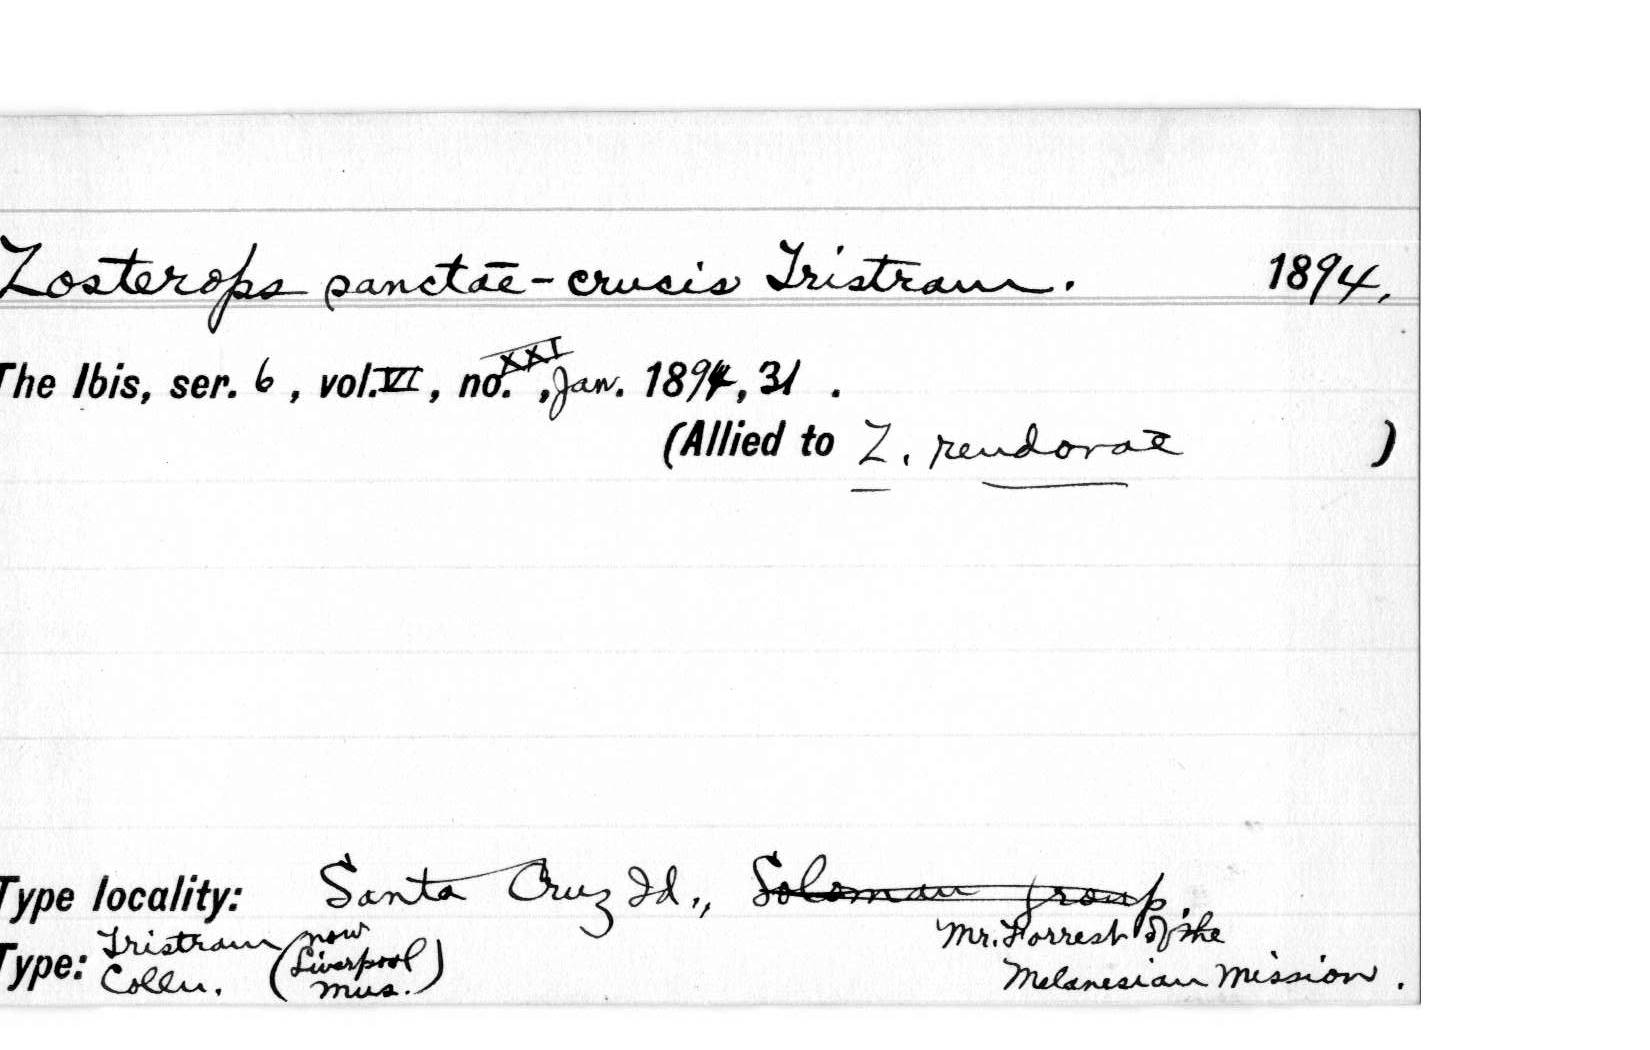 Zosterops sanctae-crucis Tristram. 1894.
The Ibis, ser. 6, vol. VI, no. XXI, Jan. 1894, 31.
(Allied to Z. rendovae )
Type locality: Santa Cruz Id., Soloman group.
Mr. Forrest of the
Melanesian Mission.
Type: Tristram Colln. (now Liverpool Mus.)